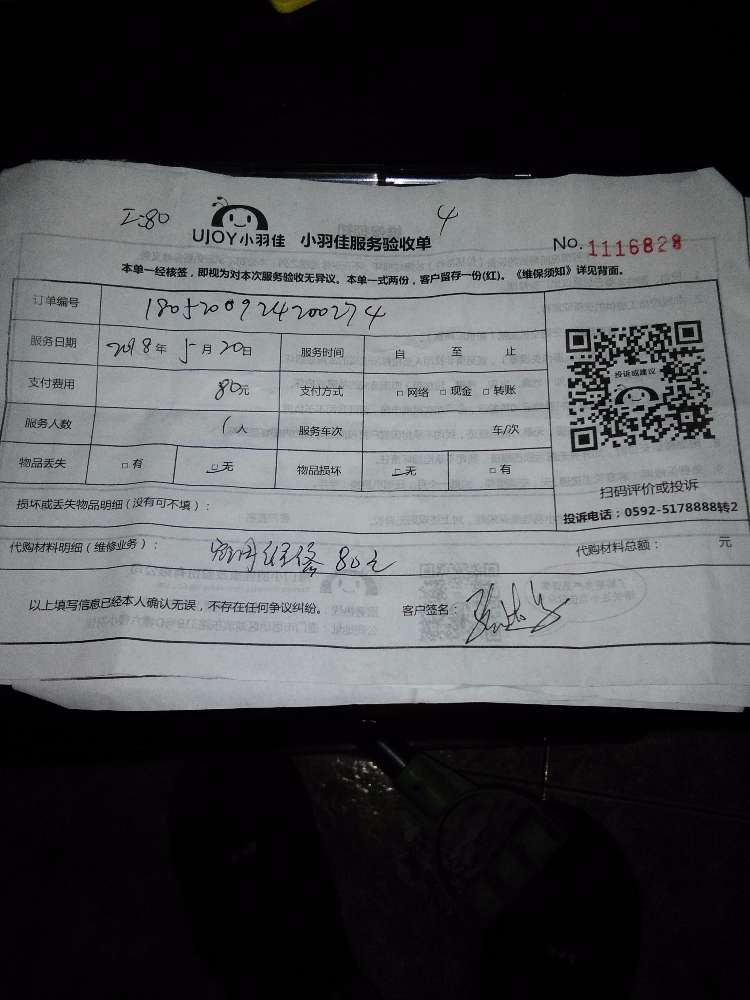 工:80
4
UJOY小羽佳 小羽佳服务验收单
No. 1116828
本单一经核签,即视为对本次服务验收无异议。本单一式两份,客户留存一份(红)。《维保须知》详见背面。
订单编号 1805200924200274
服务日期 2018年5月20日 服务时间 自 至 止
支付费用 80元 支付方式 □网络 □现金 □转账
服务人数 1人 服务车次 车/次
物品丢失 □有 □无 物品损坏 □无 □有
投诉或建议
扫码评价或投诉
投诉电话:0592-5178888转2
损坏或丢失物品明细(没有可不填):
代购材料明细(维修业务): 维修 80元 代购材料总额: 元
以上填写信息已经本人确认无误,不存在任何争议纠纷。 客户签名: